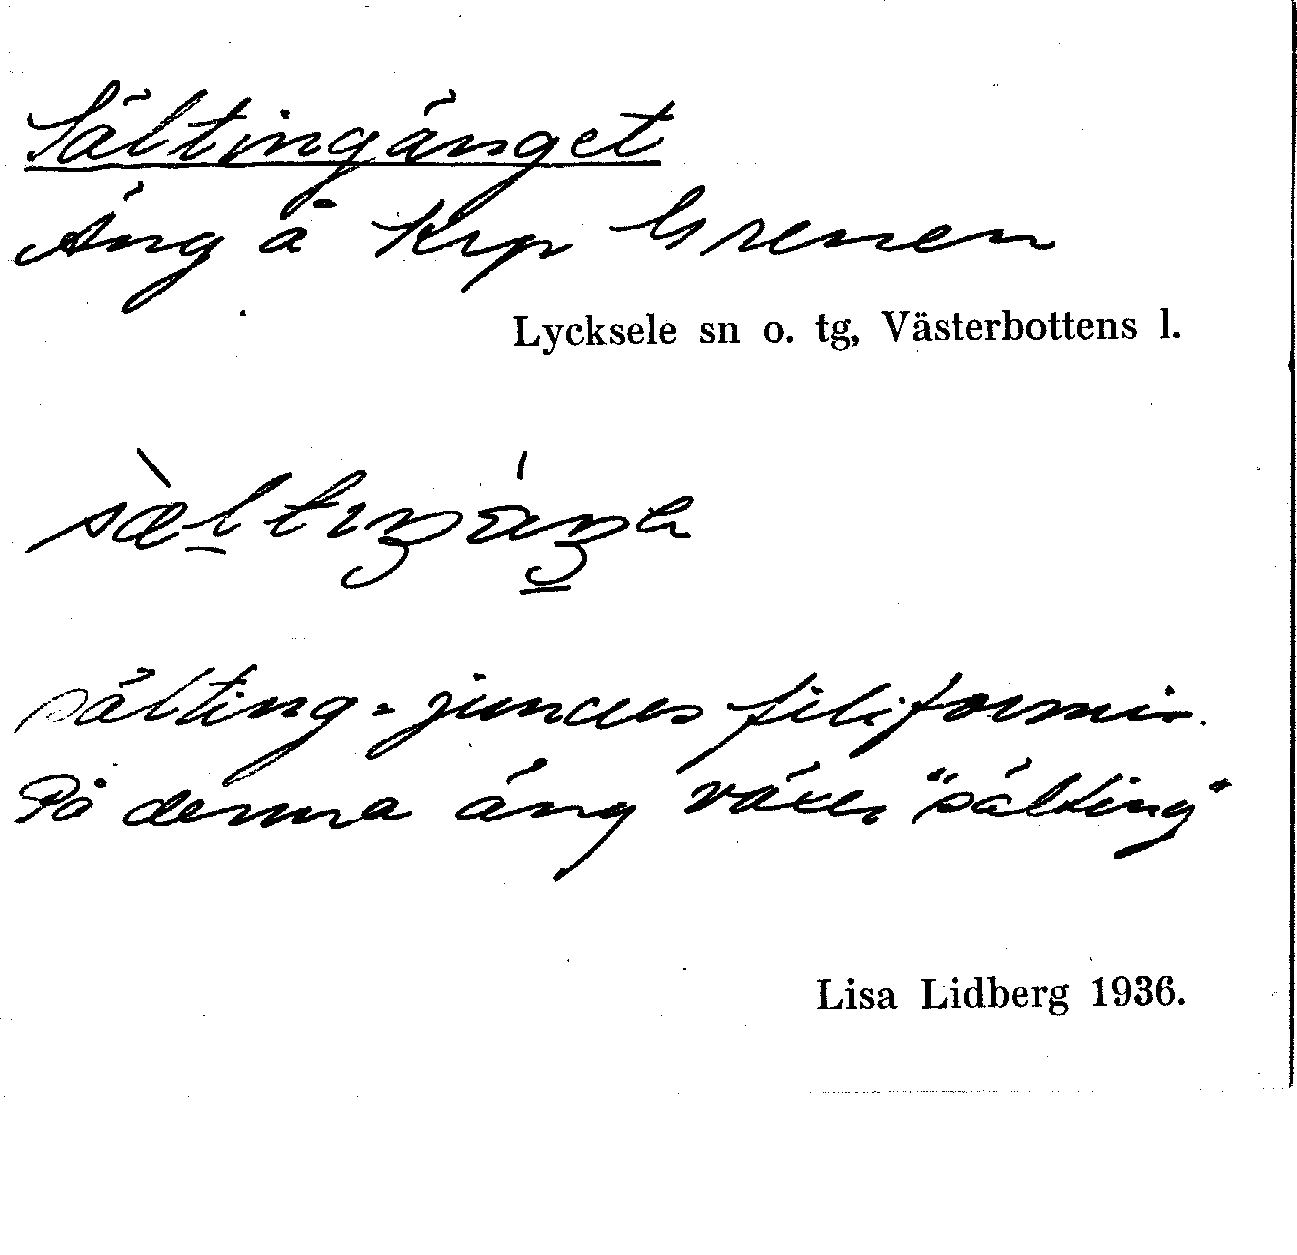 Sältingänget
Äng å Krp Grenen
Lycksele sn o. tg, Västerbottens l.
sälting = juncus filiformis.
På denna äng växer "sälting"
Lisa Lidberg 1936.